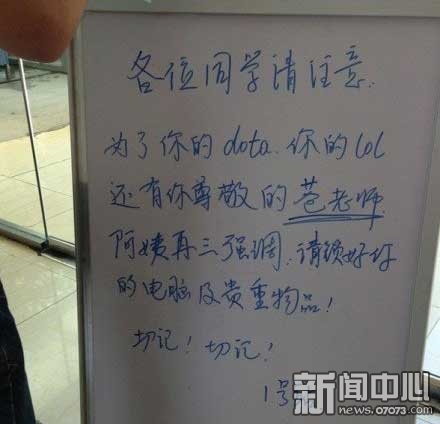 各位同学请注意.
为了你的dota.你的lol
还有你尊敬的苍老师
阿姨再三强调.请锁好你
的电脑及贵重物品!
切记! 切记!
1号
新闻中心
news.07073.com